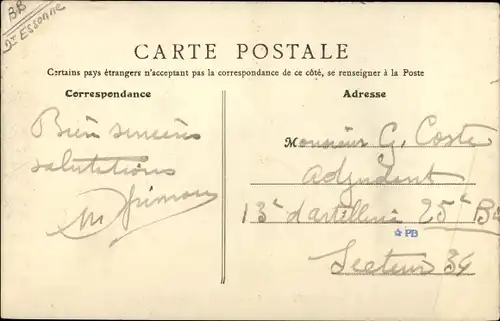 BB
Dt Essonne
CARTE POSTALE
Certains pays étrangers n'acceptant pas la correspondance de ce côté, se renseigner à la Poste
Correspondance
Adresse
Bien sincères
salutations
Monsieur G. Coste
Adjudant
13e d'artillerie 25e Bie
☆PB
Secteur 34